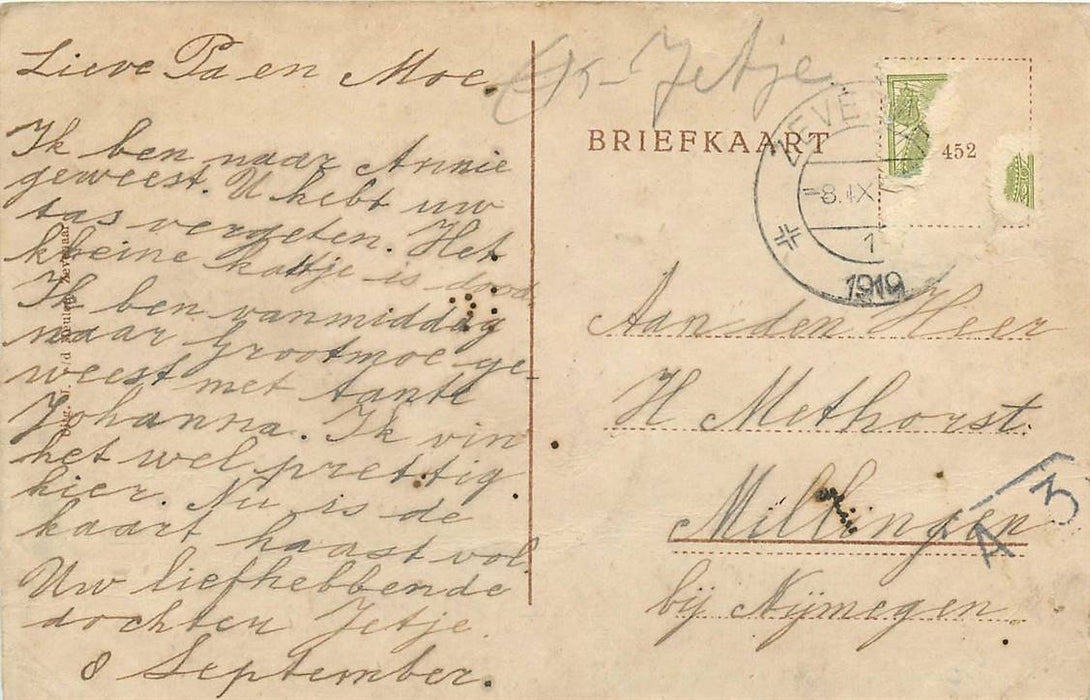 Lieve Pa en Moe.
Ik ben naar Annie
geweest. U hebt uw
tas vergeten. Het
kleine katje is dood
Ik ben vanmiddag
naar Grootmoe ge-
weest met tante
Johanna. Ik vin
het wel prettig
hier. Nu is de
kaart haast vol.
Uw liefhebbende
dochter Jetje.
8 September.
Jetje
BRIEFKAART
452
ZEVE
-8.IX
1
1919
Aan den Heer
H Methorst.
Millingen
bij Nijmegen.
A 3
Uitg.